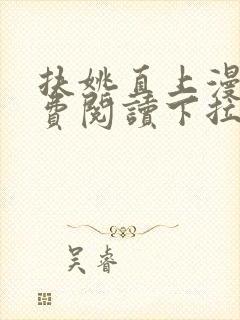 扶姚直上漫
费阅讀下拉
吴睿